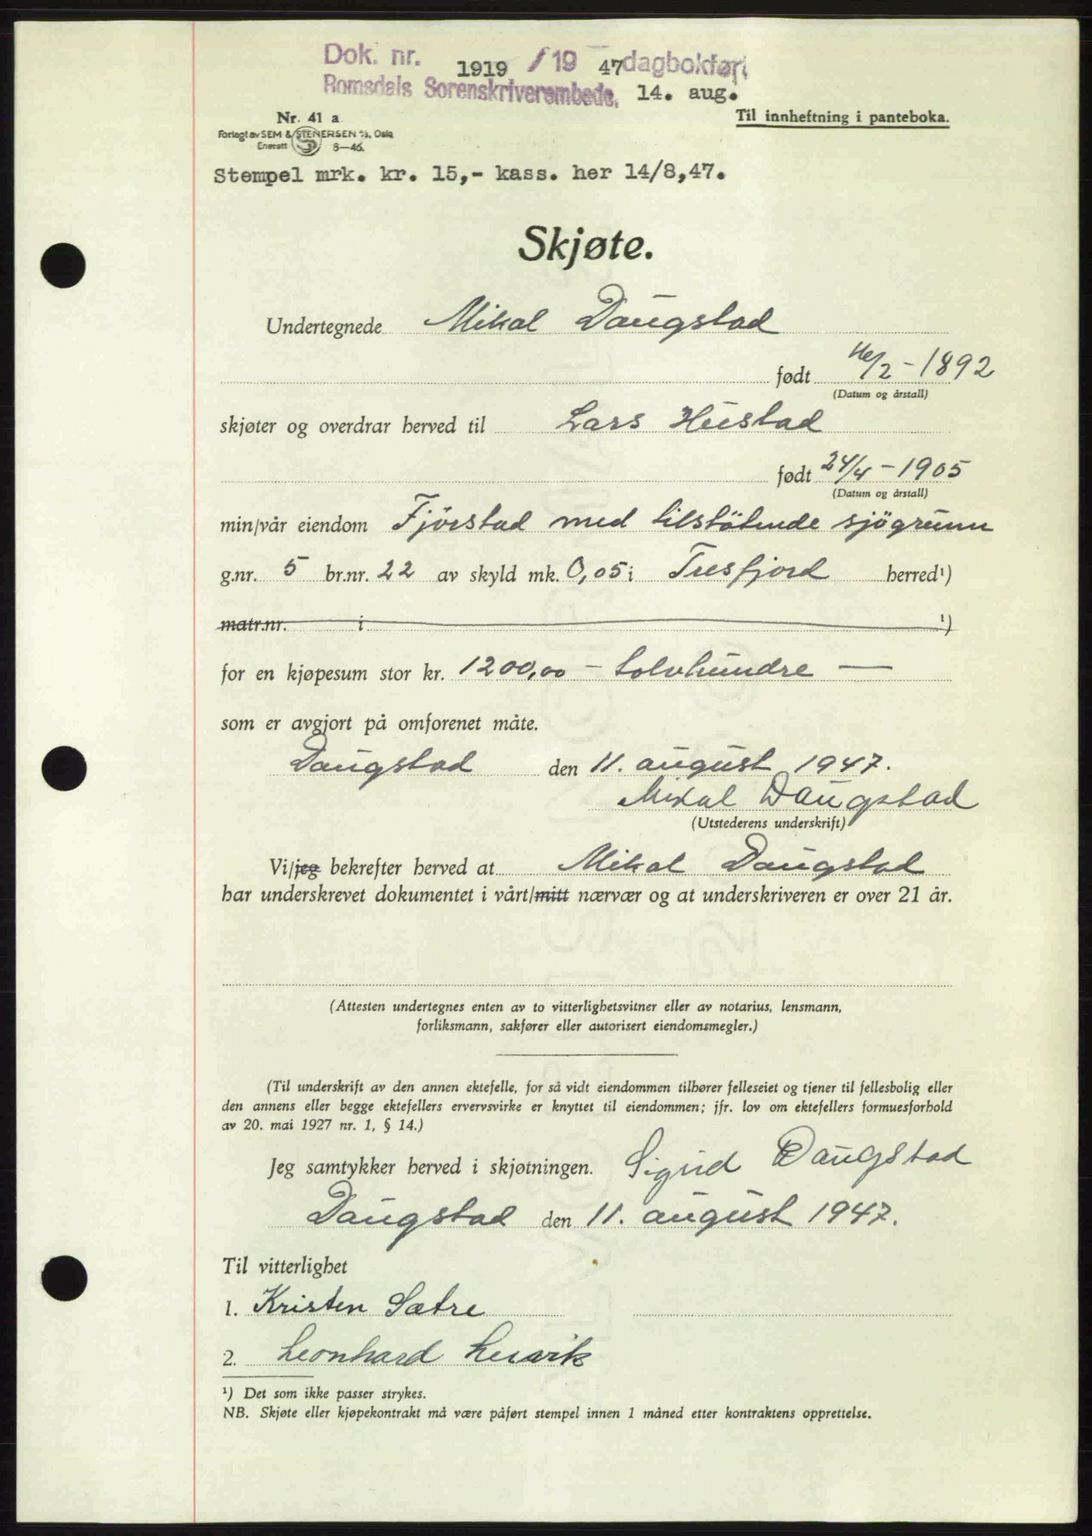 Dok. nr. 1919 /19 47 dagbokført
Romsdals Sorenskriverembede, 14. aug.
Nr. 41 a
Til innheftning i panteboka.
Forlagt av SEM & STENERSEN A/S, Oslo
Enerett 8-46.
Stempel mrk. kr. 15,- kass. her 14/8,47.
Skjøte.
Undertegnede Mikal Daugstad
født /2 - 1892
(Datum og årstall)
skjøter og overdrar herved til Lars Hustad
født 24/4 - 1905
(Datum og årstall)
min/vår eiendom Fjörstad med tilstötende sjögrunn
g.nr. 5 br.nr. 22 av skyld mk. 0,05 i Tresfjord herred¹)
matr.nr. i ¹)
for en kjøpesum stor kr. 1200,00 - tolvhundre —
som er avgjort på omforenet måte.
Daugstad den 11. august 1947.
Mikal Daugstad
(Utstederens underskrift)
Vi/jeg bekrefter herved at Mikal Daugstad
har underskrevet dokumentet i vårt/mitt nærvær og at underskriveren er over 21 år.
(Attesten undertegnes enten av to vitterlighetsvitner eller av notarius, lensmann,
forliksmann, sakfører eller autorisert eiendomsmegler.)
(Til underskrift av den annen ektefelle, for så vidt eiendommen tilhører felleseiet og tjener til fellesbolig eller
den annens eller begge ektefellers ervervsvirke er knyttet til eiendommen; jfr. lov om ektefellers formuesforhold
av 20. mai 1927 nr. 1, § 14.)
Jeg samtykker herved i skjøtningen. Sigrid Daugstad
Daugstad den 11. august 1947.
Til vitterlighet
1. Kristen Sætre
2. Leonhard
¹) Det som ikke passer strykes.
NB. Skjøte eller kjøpekontrakt må være påført stempel innen 1 måned etter kontraktens opprettelse.